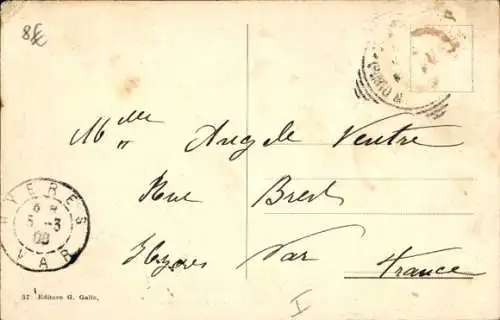 8£
Mlle Angèle Ventre
Rue Brest
Hyères Var
France
HYERES
5 -3
08
VAR
I
37 Editore G. Gallo,